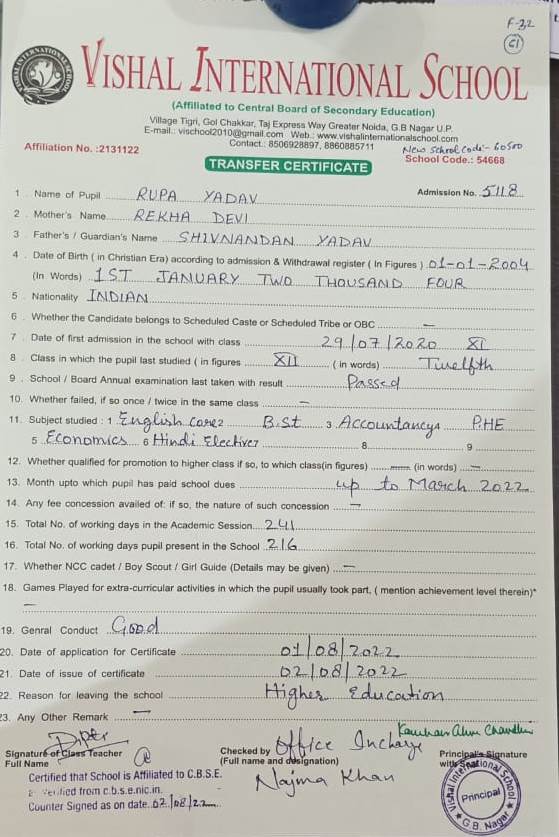 F-32
C1
VISHAL INTERNATIONAL SCHOOL
VISHAL INTERNATIONAL SCHOOL
(Affiliated to Central Board of Secondary Education)
Village Tigri, Gol Chakkar, Taj Express Way Greater Noida, G.B Nagar U.P.
E-mail.: vischool2010@gmail.com Web.: www.vishalinternationalschool.com
Contact.: 8506928897, 8860885711
New School Code:- 60500
Affiliation No. :2131122
School Code.: 54668
TRANSFER CERTIFICATE
1 . Name of Pupil RUPA YADAV Admission No. 5118
2 . Mother's Name REKHA DEVI
3 . Father's / Guardian's Name SHIVNANDAN YADAV
4 . Date of Birth ( in Christian Era) according to admission & Withdrawal register ( In Figures ) 01-01-2004
(In Words) 1ST JANUARY TWO THOUSAND FOUR
5 . Nationality INDIAN
6 . Whether the Candidate belongs to Scheduled Caste or Scheduled Tribe or OBC —
7 . Date of first admission in the school with class 29/07/2020 XI
8 . Class in which the pupil last studied ( in figures XII ( in words) Twelfth
9 . School / Board Annual examination last taken with result Passed
10. Whether failed, if so once / twice in the same class —
11. Subject studied : 1 English core 2 B.St 3 Accountancy 4 P.HE
5 Economics 6 Hindi Elective 7 8 9
12. Whether qualified for promotion to higher class if so, to which class(in figures) — (in words) —
13. Month upto which pupil has paid school dues up to March 2022
14. Any fee concession availed of: if so, the nature of such concession —
15. Total No. of working days in the Academic Session 241
16. Total No. of working days pupil present in the School 216
17. Whether NCC cadet / Boy Scout / Girl Guide (Details may be given) —
18. Games Played for extra-curricular activities in which the pupil usually took part, ( mention achievement level therein)*
—
19. Genral Conduct Good
20. Date of application for Certificate 01/08/2022
21. Date of issue of certificate 02/08/2022
22. Reason for leaving the school Higher Education
23. Any Other Remark —
Signature of Class Teacher
Full Name
Checked by Office Incharge
(Full name and designation)
Najma Khan
Principal's Signature
with Seal
Certified that School is Affiliated to C.B.S.E.
& Verified from c.b.s.e.nic.in.
Counter Signed as on date 02/08/22
Vishal International School
Principal
G.B. Nagar